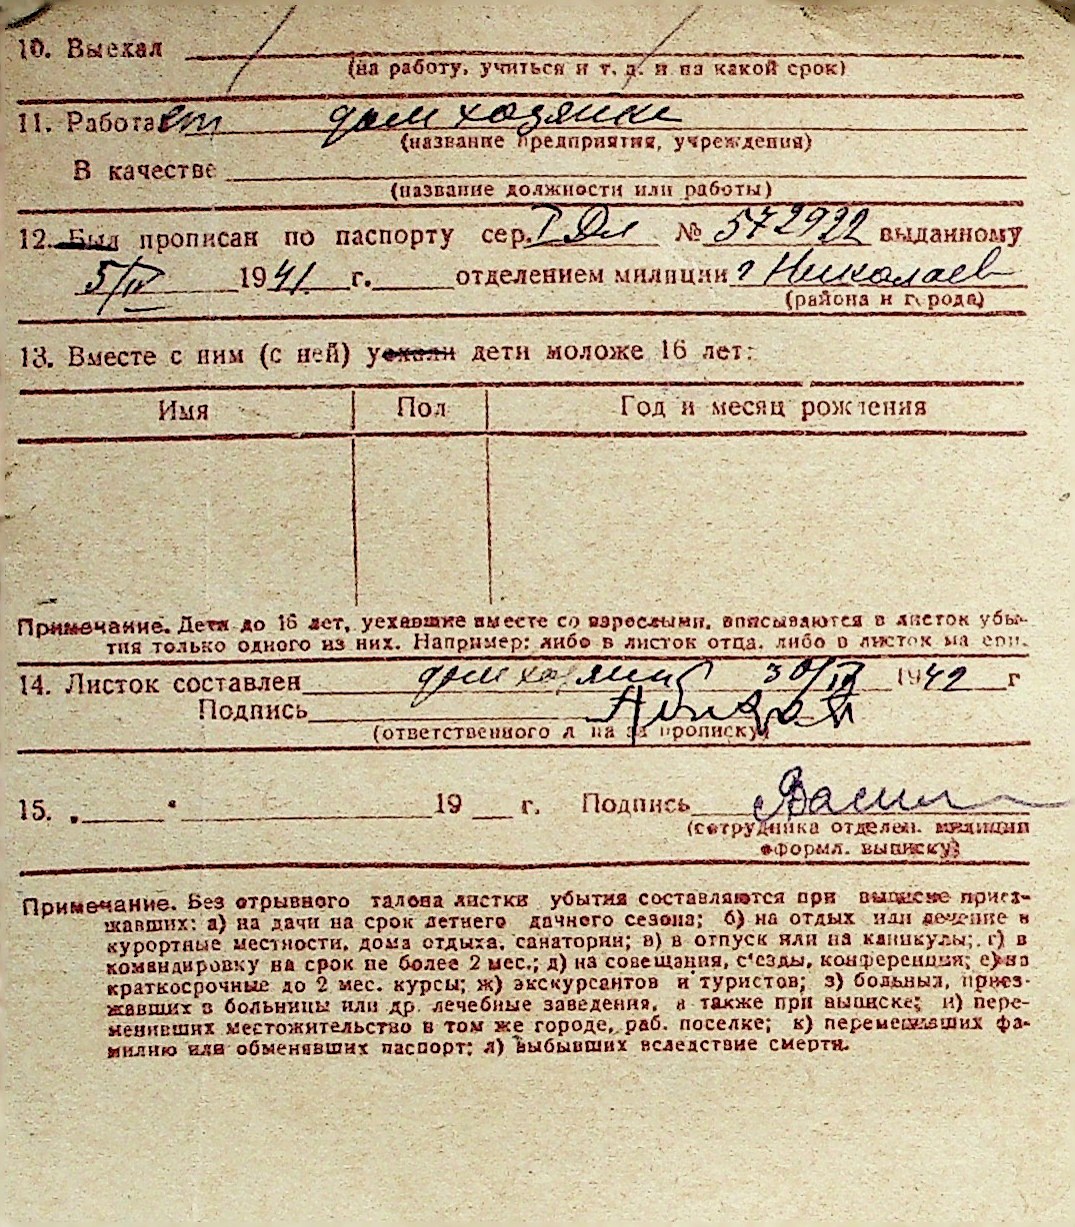 10. Выехал
(на работу, учиться и т. д. и на какой срок)
11. Работает дом хозяйке
(название предприятия, учреждения)
В качестве
(название должности или работы)
12. Был прописан по паспорту сер. № 572922 выданному
5/IV 1941 г. отделением милиции г Николаев
(района и города)
13. Вместе с ним (с ней) уехали дети моложе 16 лет:
Имя Пол Год и месяц рождения
Примечание. Дети до 16 лет, уехавшие вместе со взрослыми, вписываются в листок убы-
тия только одного из них. Например: либо в листок отца, либо в листок ма ери.
14. Листок составлен 30/IV 1942 г
Подпись
(ответственного л на за прописку)
15. „ " 19 г. Подпись
(сотрудника отделен. милиции
оформл. выписку)
Примечание. Без отрывного талона листки убытия составляются при выписке приез-
жавших: а) на дачи на срок летнего дачного сезона; б) на отдых или лечение в
курортные местности, дома отдыха, санатории; в) в отпуск или на каникулы; г) в
командировку на срок не более 2 мес.; д) на совещания, с'езды, конференции; е) на
краткосрочные до 2 мес. курсы; ж) экскурсантов и туристов; з) больных, приез-
жавших в больницы или др. лечебные заведения, а также при выписке; и) пере-
менивших местожительство в том же городе, раб. поселке; к) переменивших фа-
милию или обменявших паспорт; л) выбывших вследствие смерти.